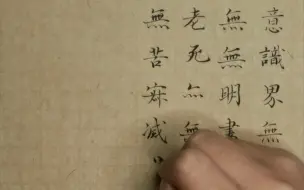 意識界無
無無明盡
老死亦無
無苦滅